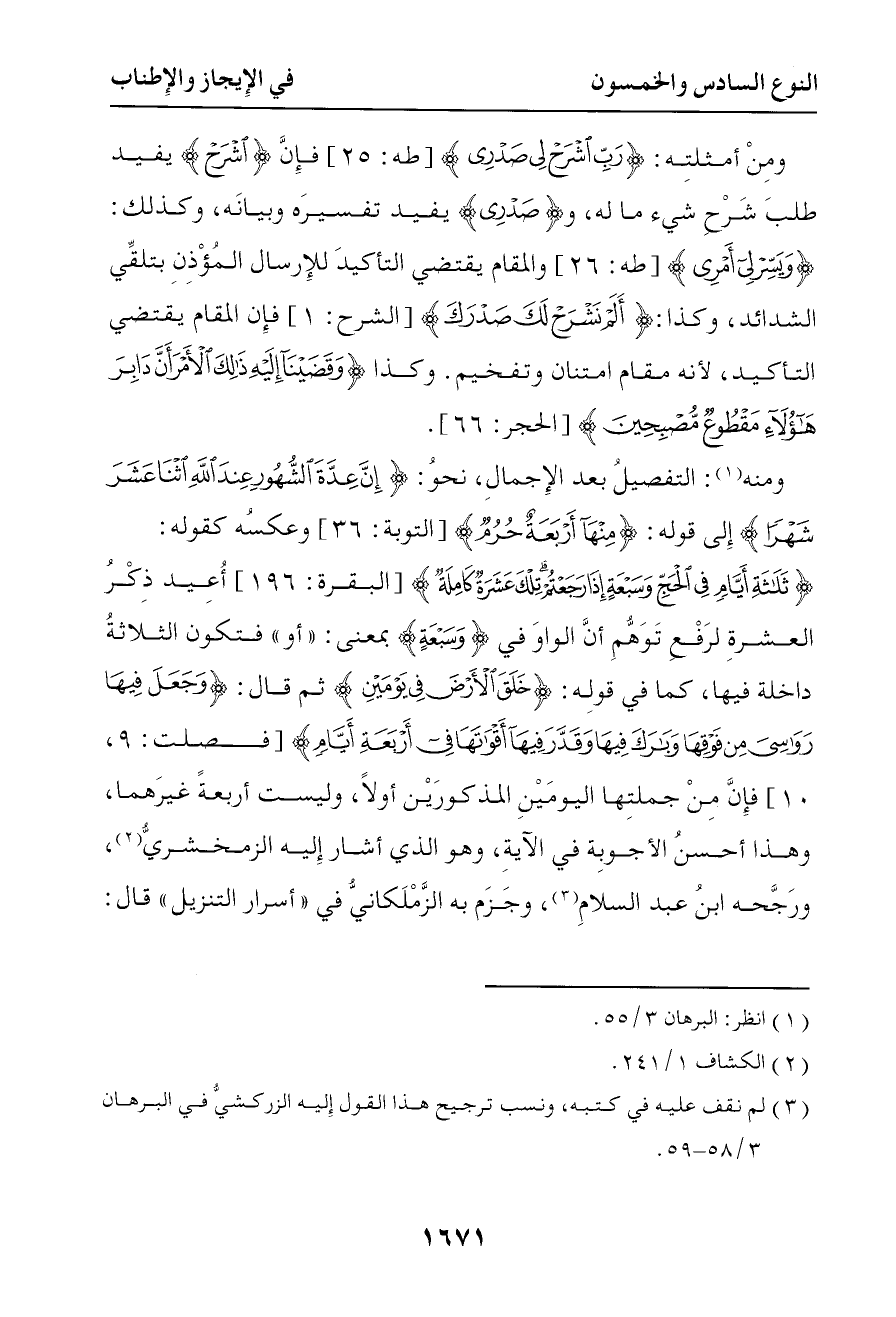 النوع السادس والخمسون في الإيجاز والإطناب
ومنْ أمثلته: ﴿رَبِّ ٱشْرَحْ لِى صَدْرِى﴾ [طه: ٢٥] فإنَّ ﴿ٱشْرَحْ﴾ يفيد
طلبَ شَرْحِ شيء ما له، و﴿صَدْرِى﴾ يفيد تفسيرَه وبيانَه، وكذلك:
﴿وَيَسِّرْ لِىٓ أَمْرِى﴾ [طه: ٢٦] والمقام يقتضي التأكيدَ للإرسال المُؤْذنِ بتلقِّي
الشدائد، وكذا: ﴿أَلَمْ نَشْرَحْ لَكَ صَدْرَكَ﴾ [الشرح: ١] فإن المقام يقتضي
التأكيد، لأنه مقام امتنان وتفخيم. وكذا ﴿وَقَضَيْنَآ إِلَيْهِ ذَٰلِكَ ٱلْأَمْرَ أَنَّ دَابِرَ
هَٰٓؤُلَآءِ مَقْطُوعٌ مُّصْبِحِينَ﴾ [الحجر: ٦٦].
ومنه(١): التفصيلُ بعد الإجمال، نحوُ: ﴿إِنَّ عِدَّةَ ٱلشُّهُورِ عِندَ ٱللَّهِ ٱثْنَا عَشَرَ
شَهْرًا﴾ إلى قوله: ﴿مِنْهَآ أَرْبَعَةٌ حُرُمٌ﴾ [التوبة: ٣٦] وعكسُه كقوله:
﴿ثَلَٰثَةِ أَيَّامٍ فِى ٱلْحَجِّ وَسَبْعَةٍ إِذَا رَجَعْتُمْ ۗ تِلْكَ عَشَرَةٌ كَامِلَةٌ﴾ [البقرة: ١٩٦] أُعيد ذكْرُ
العشرة لرَفْعِ تَوَهُّمِ أنَّ الواوَ في ﴿وَسَبْعَةٍ﴾ بمعنى: «أو» فتكون الثلاثةُ
داخلة فيها، كما في قوله: ﴿خَلَقَ ٱلْأَرْضَ فِى يَوْمَيْنِ﴾ ثم قال: ﴿وَجَعَلَ فِيهَا
رَوَٰسِىَ مِن فَوْقِهَا وَبَٰرَكَ فِيهَا وَقَدَّرَ فِيهَآ أَقْوَٰتَهَا فِىٓ أَرْبَعَةِ أَيَّامٍ﴾ [فصلت: ٩،
١٠] فإنَّ منْ جملتها اليومَيْنِ المذكورَيْن أولاً، وليست أربعةً غيرَهما،
وهذا أحسنُ الأجوبة في الآية، وهو الذي أشار إليه الزمخشريُّ(٢)،
ورَجَّحه ابنُ عبد السلامِ(٣)، وجَزَم به الزَّمْلَكانيُّ في «أسرار التنزيل» قال:
(١) انظر: البرهان ٣/ ٥٥.
(٢) الكشاف ١/ ٢٤١.
(٣) لم نقف عليه في كتبه، ونسب ترجيح هذا القول إليه الزركشيُّ في البرهان
٣/ ٥٨-٥٩.
١٦٧١